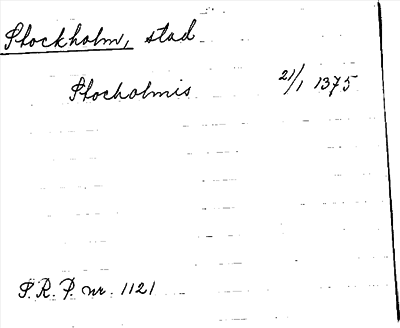 Stockholm, stad
Stocholmis 21/1 1375
S.R.P. nr. 1121